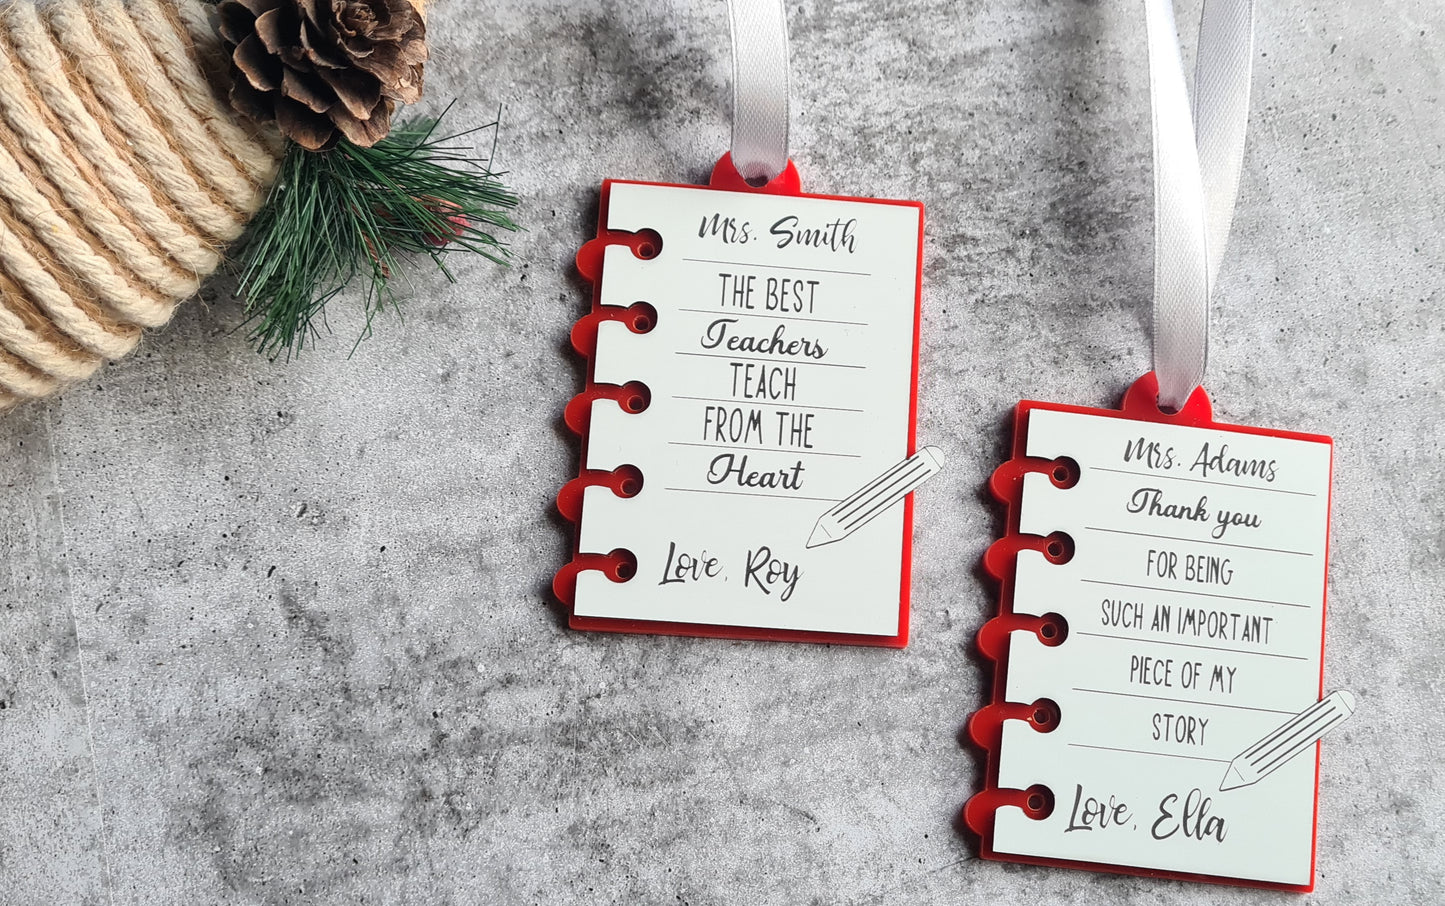 Mrs. Smith
THE BEST
Teachers
TEACH
FROM THE
Heart
Love, Roy
Mrs. Adams
Thank you
FOR BEING
SUCH AN IMPORTANT
PIECE OF MY
STORY
Love, Ella